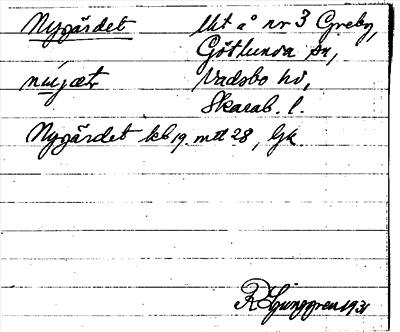 Nygärdet Ut å nr 3 Greby,
Götlunda sn,
Vadsbo hd,
Skarab. l.
Nygärdet kb 19. mtl 28, Gk
R Ljunggren 1931